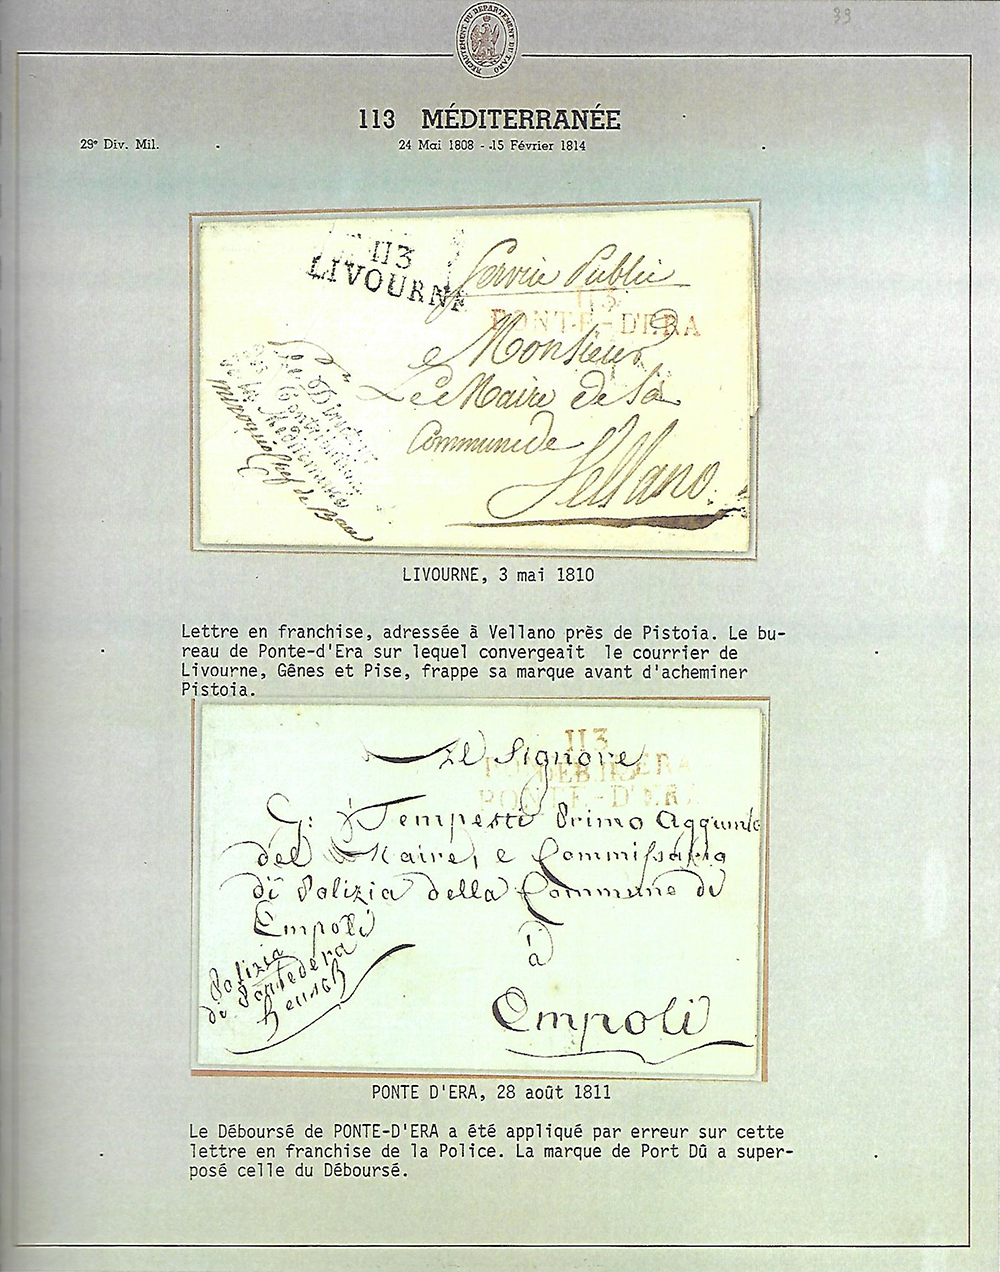 39
RECRUTEMENT DU DEPARTEMENT DU TARO
113 MÉDITERRANÉE
29e Div. Mil.
24 Mai 1808 - 15 Février 1814
113
LIVOURNE
Service Public
113
PONTE-D'ERA
Monsieur
Le Maire de la
Commune de
Vellano
Le Directeur
de la Méditerranée
Chef de
LIVOURNE, 3 mai 1810
Lettre en franchise, adressée à Vellano près de Pistoia. Le bu-
reau de Ponte-d'Era sur lequel convergeait le courrier de
Livourne, Gênes et Pise, frappe sa marque avant d'acheminer
Pistoia.
113
Il Signore
DEB 113 ERA
PONTE-D'ERA
G: Tempesti Primo Aggiunto
del Maire, e Commissario
di Polizia della Commune di
Empoli
à
Empoli
Polizia
di Pontedera
PONTE D'ERA, 28 août 1811
Le Déboursé de PONTE-D'ERA a été appliqué par erreur sur cette
lettre en franchise de la Police. La marque de Port Dû a super-
posé celle du Déboursé.